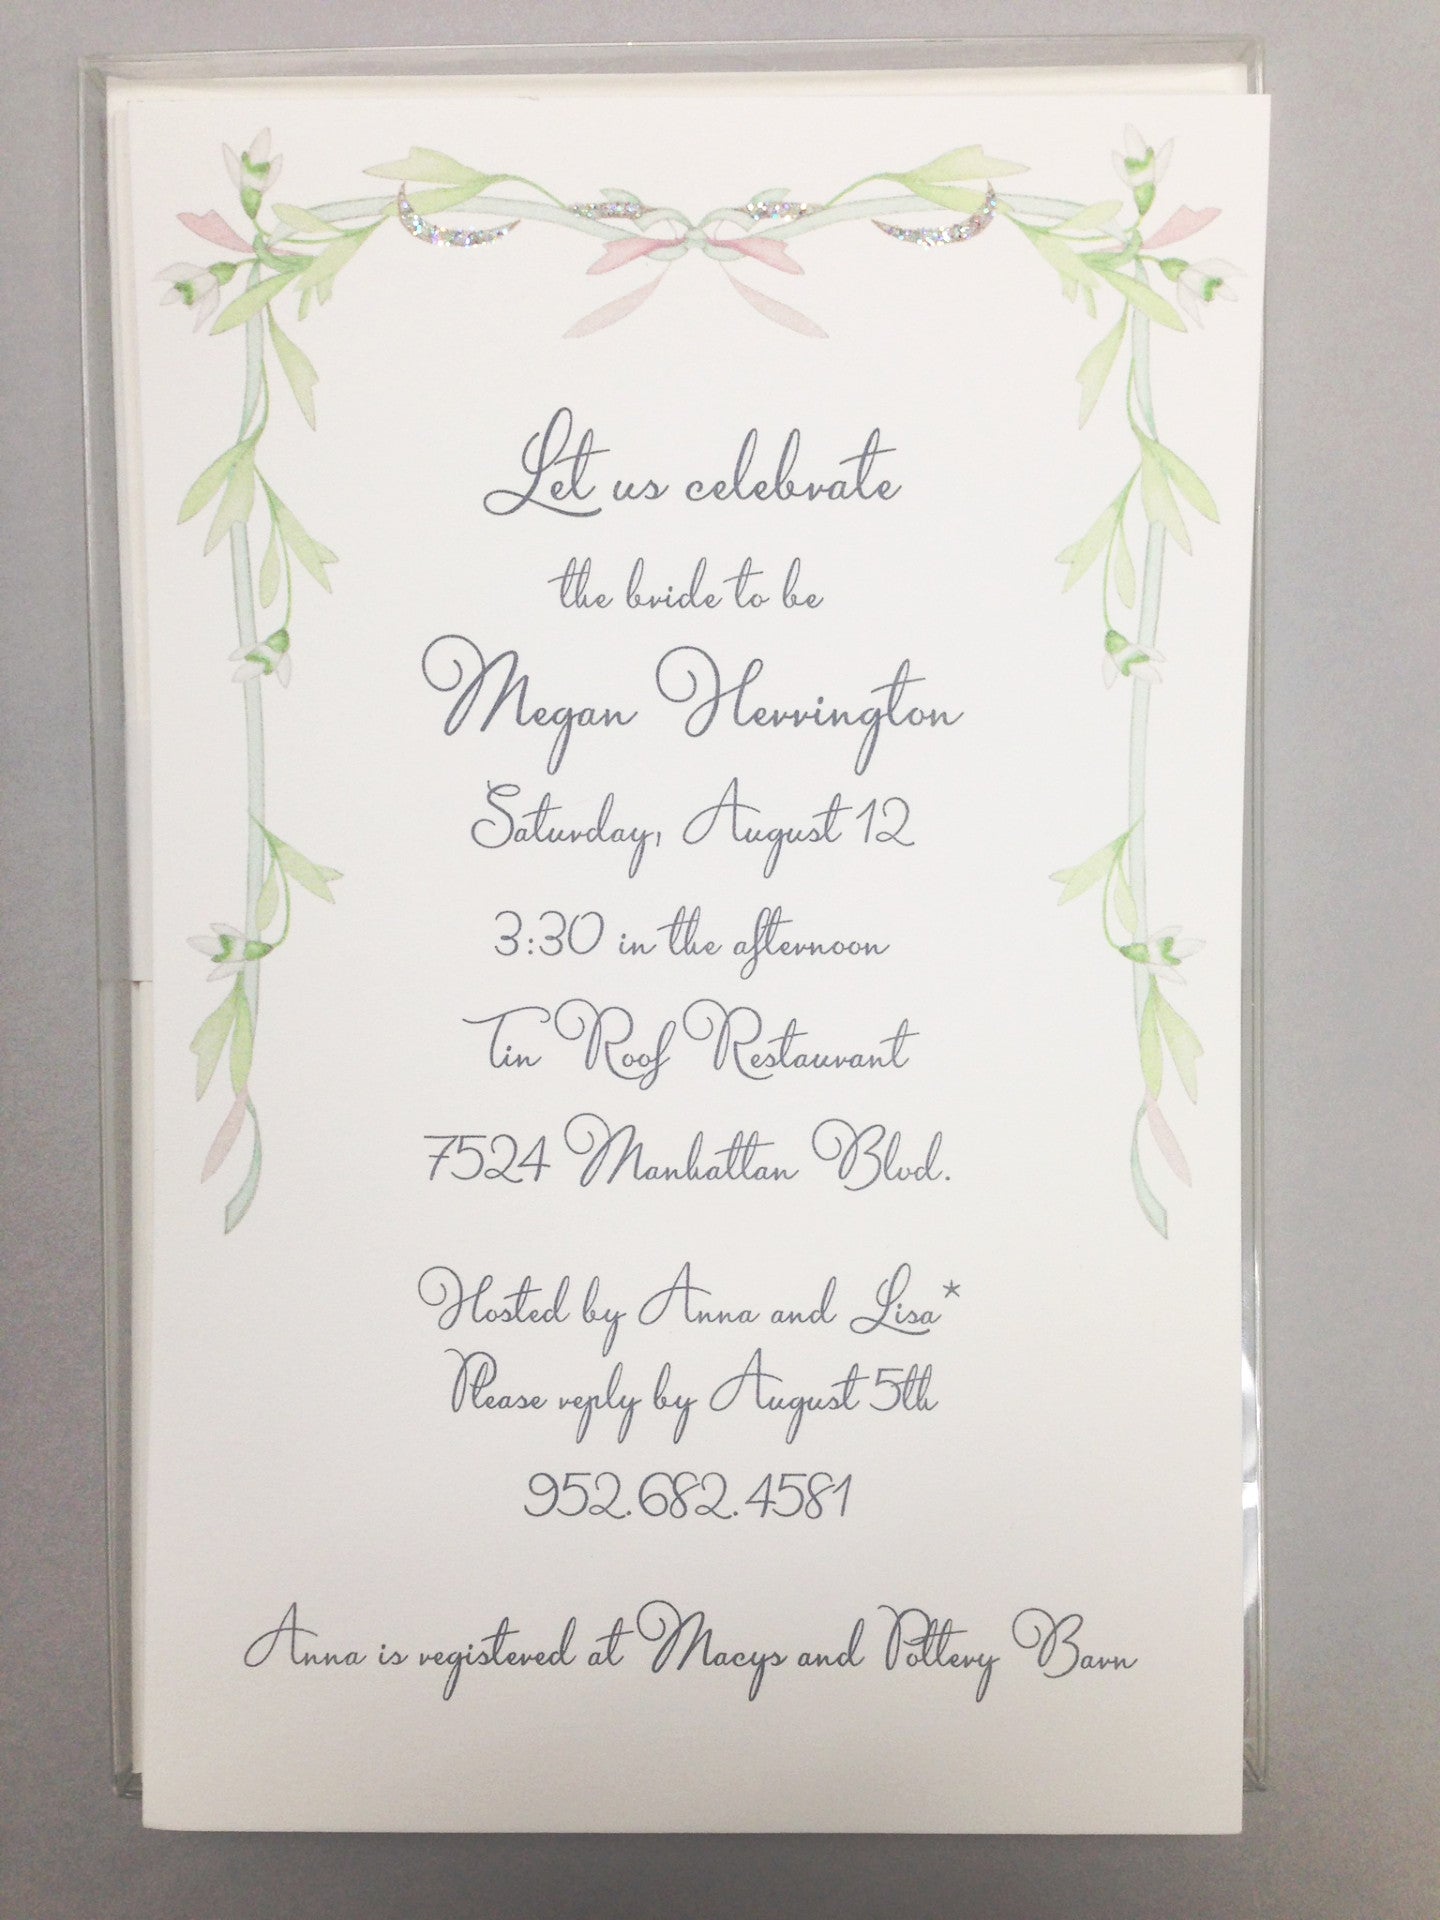 Let us celebrate
the bride to be
Megan Herrington
Saturday, August 12
3:30 in the afternoon
Tin Roof Restaurant
7524 Manhattan Blvd.
Hosted by Anna and Lisa*
Please reply by August 5th
952.682.4581
Anna is registered at Macys and Pottery Barn